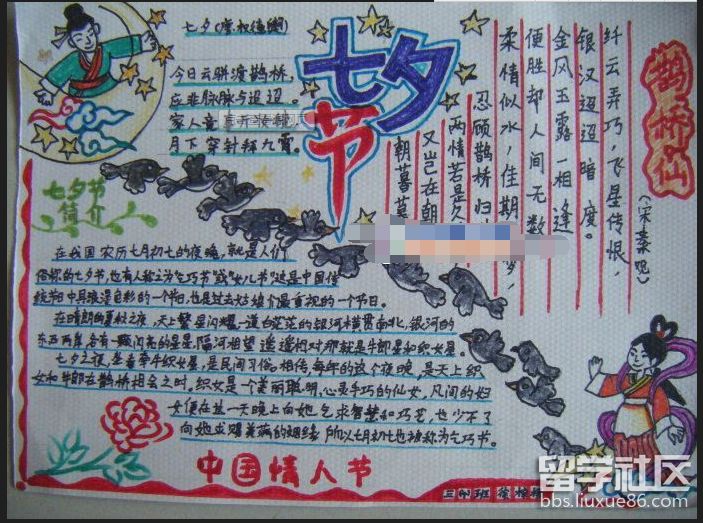 七夕节
七夕(唐 权德舆)
今日云骈渡鹊桥,
应非脉脉与迢迢。
家人竞喜开妆镜,
月下穿针拜九霄。
鹊桥仙
(宋秦观)
纤云弄巧,飞星传恨,
银汉迢迢暗度。
金风玉露一相逢
便胜却人间无数
柔情似水,佳期
梦,
忍顾鹊桥归
两情若是久
又岂在朝
朝暮暮
七夕节
简介
在我国农历七月初七的夜晚,就是人们
俗称的七夕节,也有人称之为乞巧节或"女儿节"这是中国传
统节日中具浪漫色彩的一个节日,也是过去姑娘们最重视的一个节日。
在晴朗的夏秋之夜,天上繁星闪耀一道白茫茫的银河横贯南北,银河的
东西两岸,各有一颗闪亮的星星,隔河相望遥遥相对那就是牛郎星和织女星。
七夕之夜,坐看牵牛织女星,是民间习俗。相传每年的这个夜晚,是天上织
女和牛郎在鹊桥相会之时。织女是一个美丽聪明,心灵手巧的仙女,凡间的妇
女便在这一天晚上向她乞求智慧和巧艺,也少不了
向她求赐美满的姻缘,所以七月初七也被称为乞巧节。
中国情人节
三(4)班
留学社区
bbs.liuxue86.com